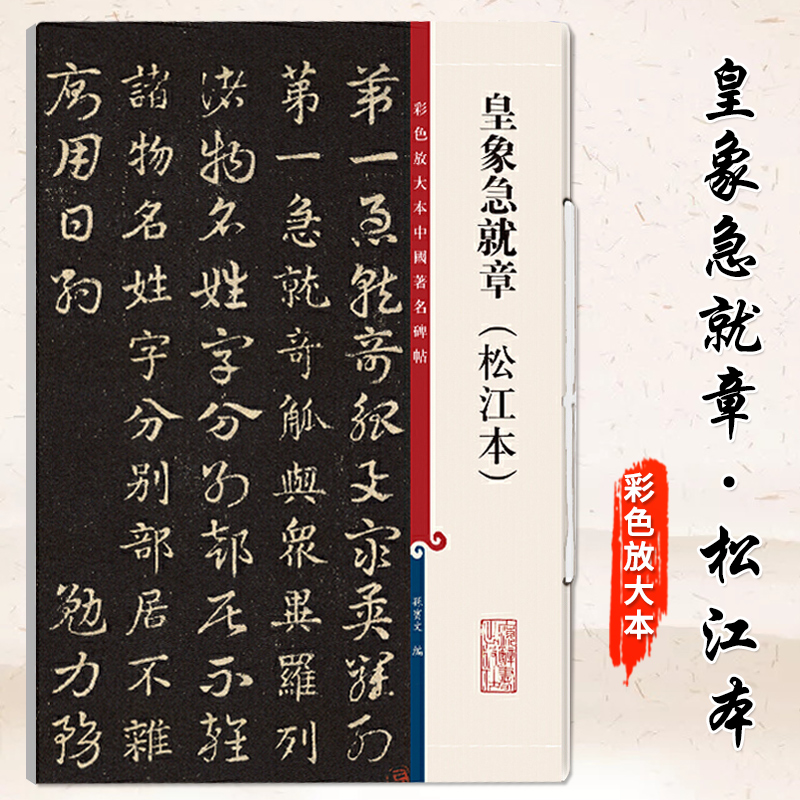 皇象急就章·松江本
彩色放大本
皇象急就章（松江本）
彩色放大本中國著名碑帖
孫寶文 編
第一急就奇觚與衆異羅列
第一急就奇觚與衆異羅列
諸物名姓字分别部居不雜
諸物名姓字分别部居不雜
廁用日約 勉力務